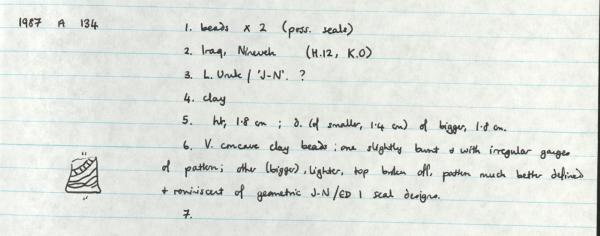 1987 A 134
1. beads x 2 (poss. seals)
2. Iraq, Nineveh (H.12, K.O)
3. L. Uruk / 'J-N'. ?
4. clay
5. ht, 1.8 cm ; d. (of smaller, 1.4 cm) of bigger, 1.8 cm.
6. V. concave clay beads : one slightly burnt & with irregular gouges
of pattern; other (bigger), lighter, top broken off, pattern much better defined
+ reminiscent of geometric J-N/ED I seal designs.
7.